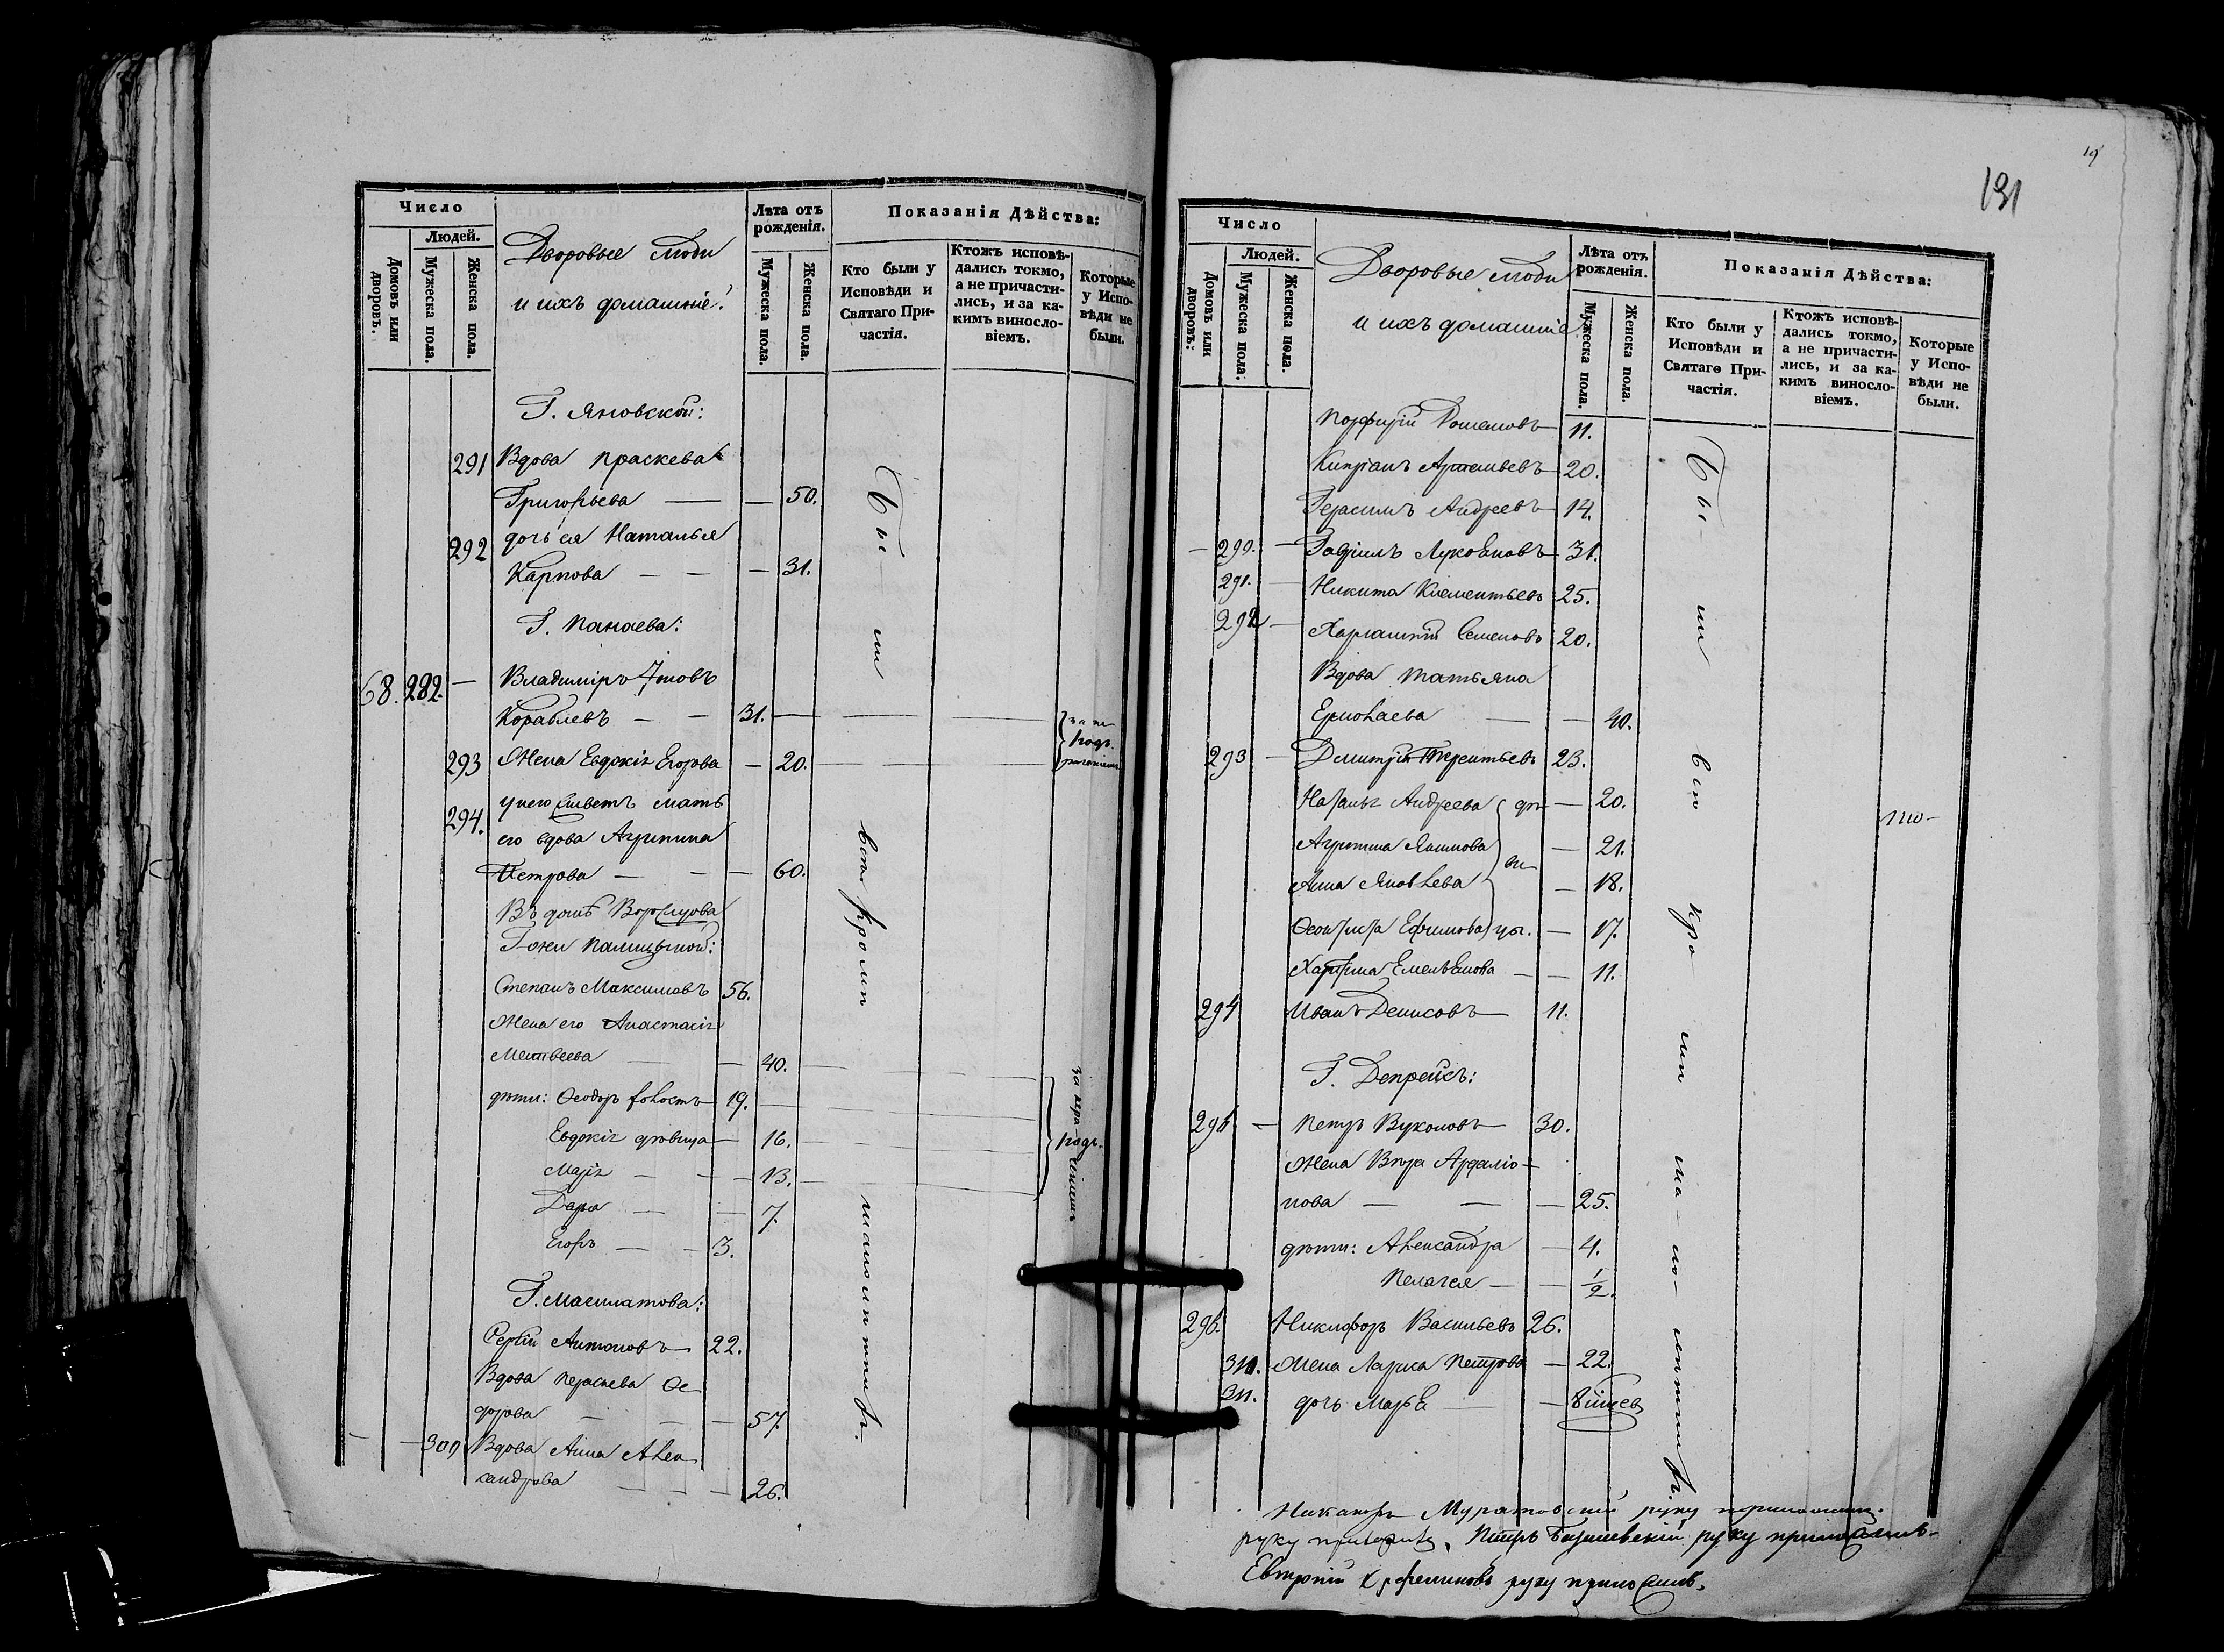 Число
Людей.
Домовъ или дворовъ.
Мужеска пола.
Женска пола.
Дворовые люди
и ихъ домашніе:
Лѣта отъ рожденія.
Мужеска пола.
Женска пола.
Показанія Дѣйства:
Кто были у Исповѣди и Святаго Причастія.
Ктожъ исповѣдались токмо, а не причастились, и за какимъ винословіемъ.
Которые у Исповѣди не были.
Г. Яновской:
291 Вдова Праскева
Григорьева — — 50.
292 дочь ея Наталья
Карпова — — — 31.
Г. Панаева:
68. 282. — Владиміръ
Кораблевъ — — 31. —
293 Жена Евдокія Егорова — 20. —
294. у него живетъ мать
его вдова Агрипина
Петрова — — — 60.
Въ домѣ
Г-жи
Степанъ Максимовъ 56.
Жена его Анастасія
Матвеева — — 40.
дѣти: Ѳеодоръ холостъ 19.
Евдокія дѣвица — 16.
Марія — — — 13.
Дарья — — 7.
Егоръ — — 3.
Г.
Сергій Антоновъ — 22.
Вдова Параскева Ѳе-
дорова — — — 57.
— — 309 Вдова Анна Алек
сандрова — — — 26.
Бы-
ли
всѣ
кромѣ
малолѣтних.
191
Число
Людей.
Домовъ или дворовъ.
Мужеска пола.
Женска пола.
Дворовые люди
и ихъ домашніе
Лѣта отъ рожденія.
Мужеска пола.
Женска пола.
Показанія Дѣйства:
Кто были у Исповѣди и Святаго Причастія.
Ктожъ исповѣдались токмо, а не причастились, и за какимъ винословіемъ.
Которые у Исповѣди не были.
Порфирій — 11.
Кипріанъ — 20.
Герасимъ Андреевъ — 14.
— 290. — Гавріилъ Лукояновъ — 31.
291. — Никита Климентьевъ 25.
292 — Харлампій Семеновъ 20.
Вдова Татьяна
Ермолаева — — 40.
293 — Дмитрій Терентьевъ 23.
Наталья Андреева — 20.
дѣ-
Агрипина Якимова — 21.
ви-
Анна Яковлева — 18.
Ѳеоктиста Ефимова цы. — 17.
Емельянова — — 11.
294 Иванъ Денисовъ — 11.
Г. Депрейсъ:
295 — Петръ Вуколовъ — 30.
Жена Вѣра Ардаліо-
нова — — — 25.
дѣти: Александра — 4.
Пелагея — — 1/2.
296. Никифоръ Васильевъ 26.
310. Жена Лариса Петрова — 22.
311. дочь Марья —
Бы-
ли
всѣ
кро-
мѣ
ма-
ло-
лѣтних.
Никаноръ Муратовскій руку приложилъ.
руку приложилъ. Петръ руку приложилъ.
Евтропій руку приложилъ.